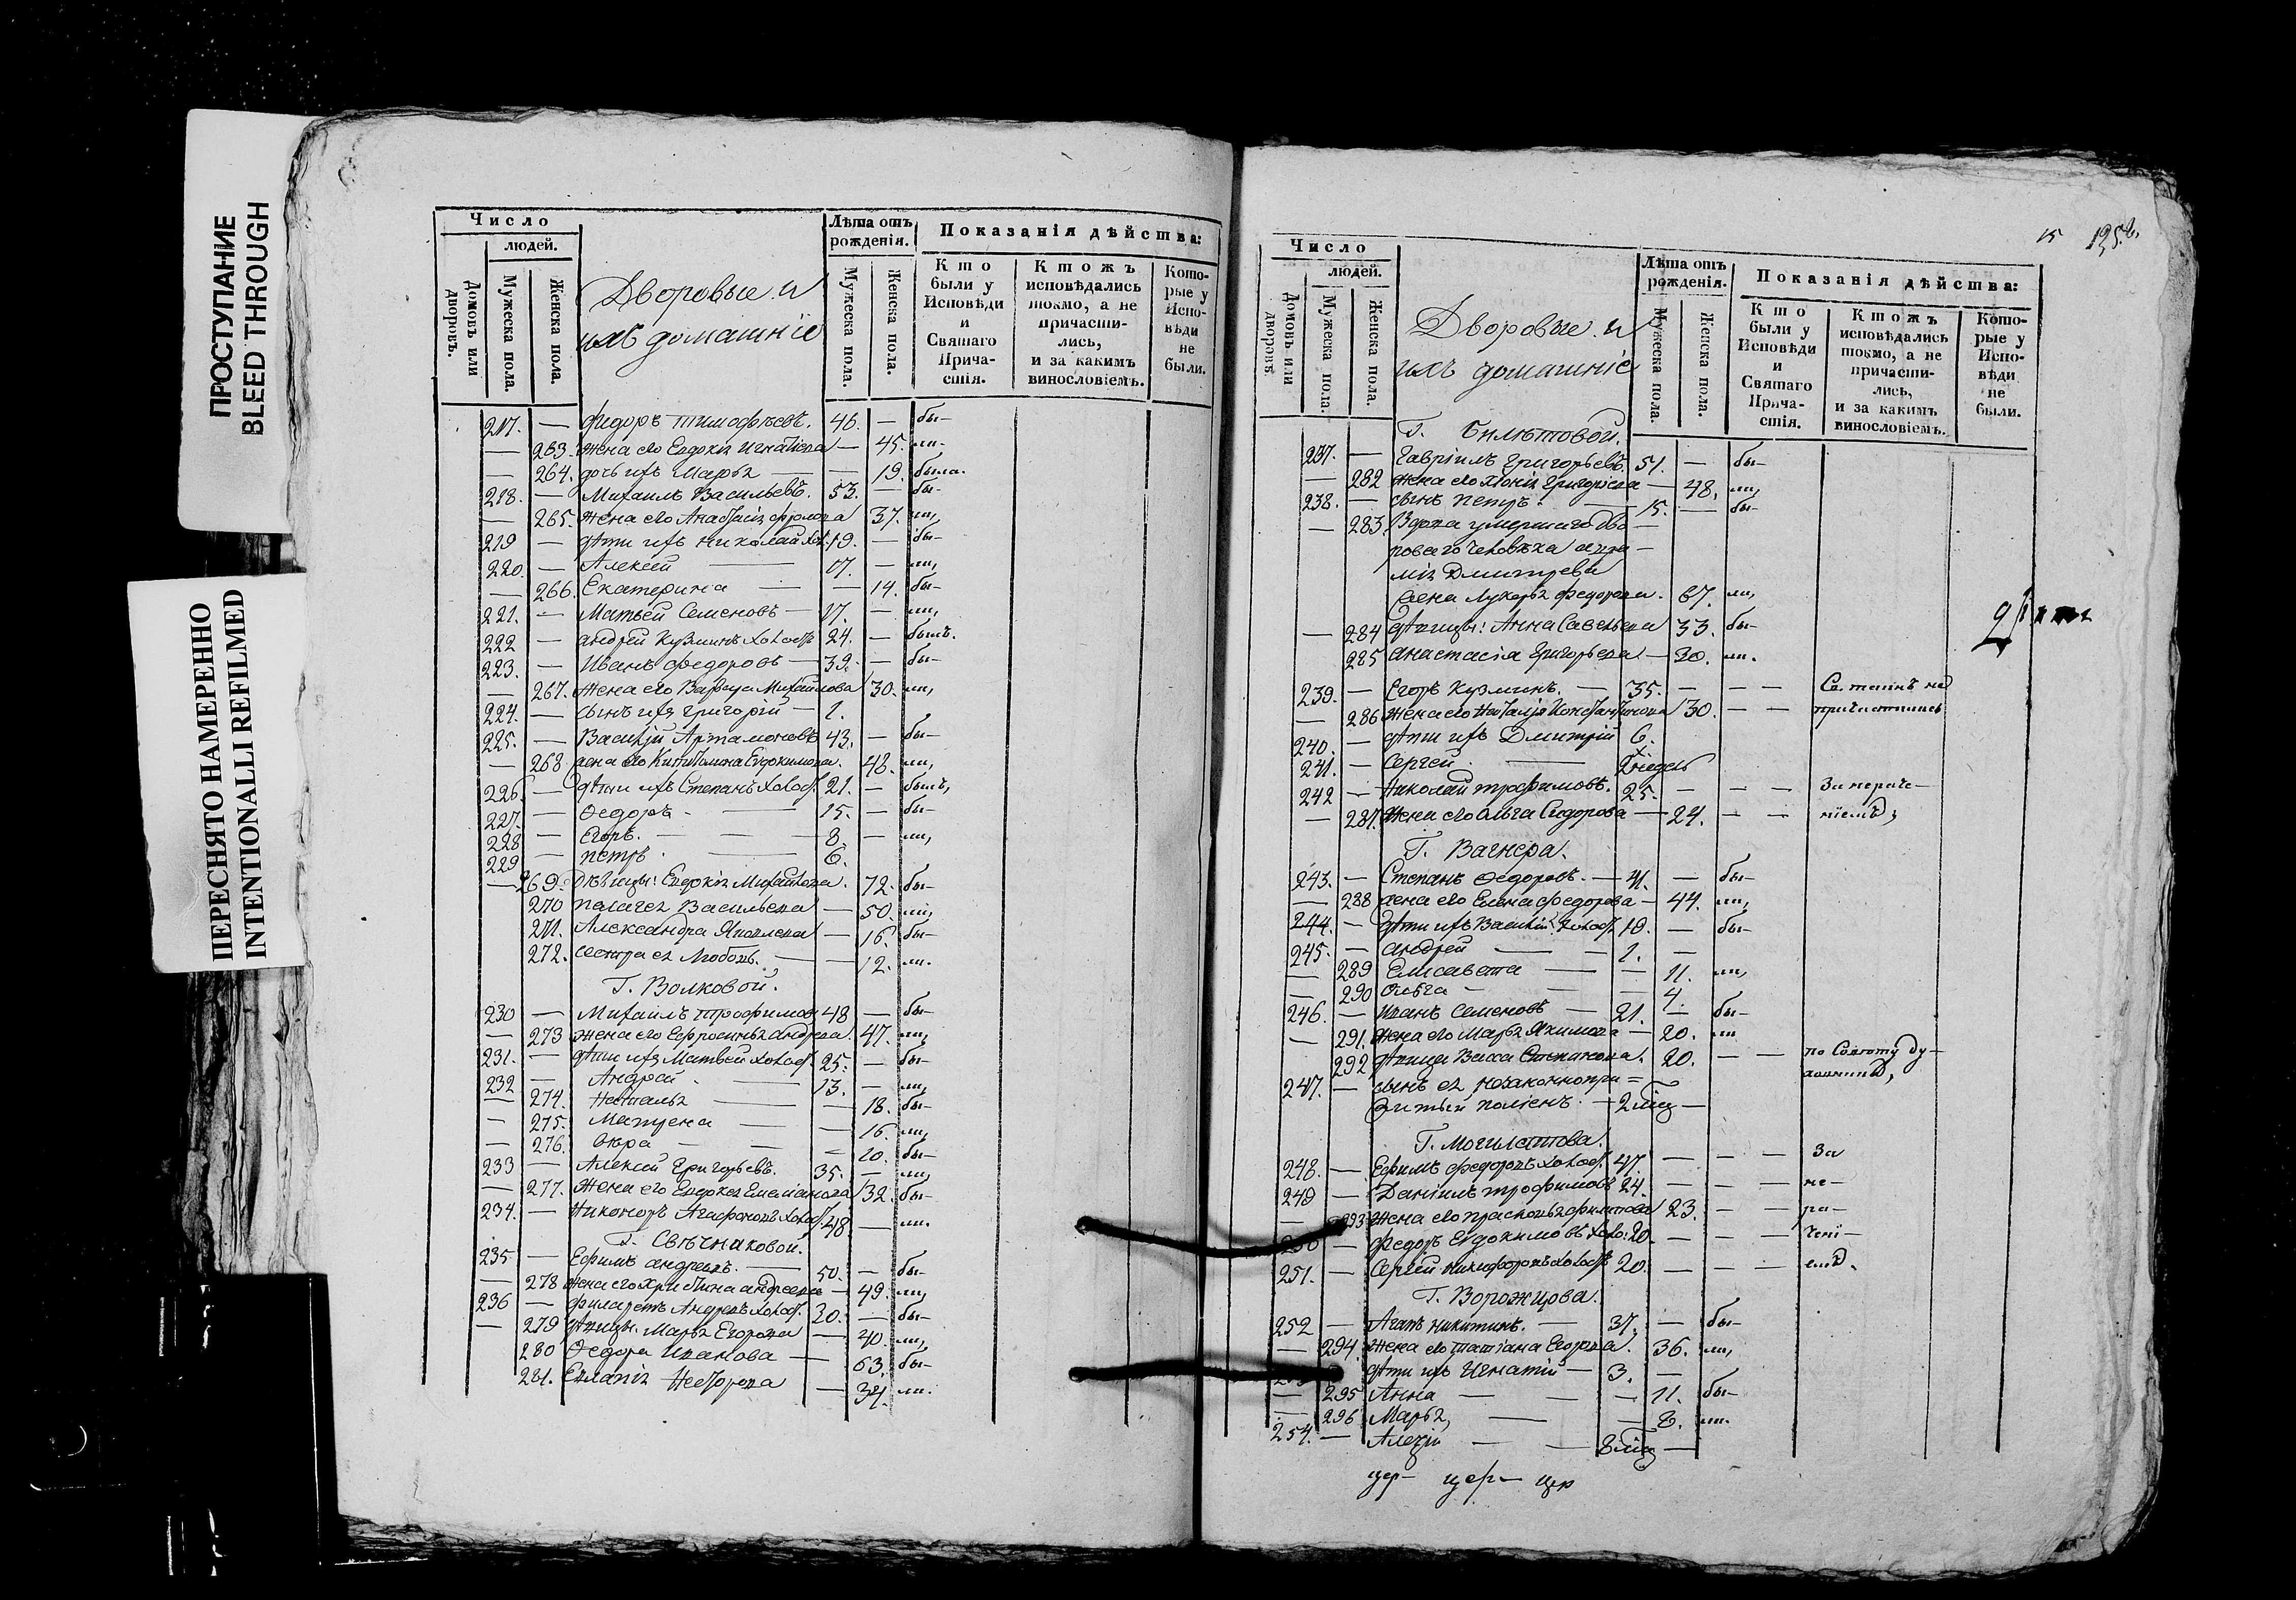 ПРОСТУПАНИЕ
BLEED THROUGH
ПЕРЕСНЯТО НАМЕРЕННО
INTENTIONALLI REFILMED
Число
людей.
Домовъ или дворовъ.
Мужеска пола.
Женска пола.
Дворовые и
ихъ домашніе
Лѣта отъ рожденія.
Мужеска пола.
Женска пола.
Показанія дѣйства:
Кто были у Исповѣди и Святаго Прича-стія.
Ктожъ исповѣдались токмо, а не причасти-лись, и за какимъ винословіемъ.
Кото-рые у Испо-вѣди не были.
217. — Федоръ Тимофѣевъ. 46. — бы-
— 263. жена его Евдокія Игнатіева — 45. ли.
— 264. дочь ихъ Марья — — 19. была.
218. — Михаилъ Васильевъ. 53. — бы-
— 265. жена его Анастасія Фролова 37. ли,
219 — дѣти ихъ Николай хол. 19. — бы-
220. — Алексей — 17. — ли,
— 266. Екатерина — — 14. бы-
221. — Матвей Семеновъ — 17. — ли,
222 — Андрей Кузминъ холостъ 24. — былъ.
223. — Иванъ Федоровъ — 39. — бы-
— 267. жена его Варвара Михайлова 30. ли,
224. — сынъ ихъ Григорій — 1.
225. — Василій Артамоновъ 43. — бы-
— 268 жена его Капитолина Евдокимова. 48. ли,
226. — дѣти ихъ Степанъ холос. 21. — былъ,
227. — Ѳедоръ — 15. — бы-
228 — Егоръ. — — 8. — ли,
229 — Петръ. — 6.
— 269. Дѣвицы: Евдокія Михайлова. 72. бы-
270 Палагея Васильева — 50. ли,
271. Александра Яковлева — 16. бы-
272. сестра ея Любовь. — — 12. ли.
Г. Волковой.
230 — Михаилъ Трофимовъ 48 — бы-
— 273 жена его Ефросинья Андреева. 47. ли,
231. — дѣти ихъ Матвей холос. 25. — бы-
232 — Андрей. — 13. — ли,
— 274. Наталья — — 18. бы-
— 275. Матрена — — 16. ли,
— 276. Ѳекра — — — 10. бы-
233 — Алексей Григорьевъ. 35. — ли,
— 277. жена его Евдокея Емелianова 32. бы-
234. — Никоноръ Агафоновъ холос. 48. — ли.
Г. Свѣчниковой.
235 — Ефимъ Андреевъ. — 50. — бы-
— 278 жена его Христина Андреева — 49. ли,
236 — Филаретъ Андреевъ холос. 30. — бы-
— 279 дѣвицы. Марья Егорова — 40. ли,
280 Ѳедора Иванова — 63. бы-
281. Евлапія Несторова — 34. ли.
15
Число
людей.
Домовъ или дворовъ.
Мужеска пола.
Женска пола.
Дворовые и
ихъ домашніе
Лѣта отъ рожденія.
Мужеска пола.
Женска пола.
Показанія дѣйства:
Кто были у Исповѣди и Святаго Прича-стія.
Ктожъ исповѣдались токмо, а не причасти-лись, и за какимъ винословіемъ.
Кото-рые у Испо-вѣди не были.
Г. Билѣтовой.
237. — Гавріилъ Григорьевъ. 51. — бы-
— 282 жена его Хіонія Григоріева — 48. ли,
238. — сынъ Петръ. — 15. — бы-
— 283. Вдова умершаго дво-
роваго человѣка
Дмитрева
жена Лукерья Федорова. 67. ли,
— 284 дѣвицы: Анна Савельева 33. бы-
285 Анастасія Григорьева — 30. ли.
239. — Егоръ Кузминъ. — 35. — — — Св. таинъ не
— 286 жена его Наталія Константинова 30. — — причастились
240. — дѣти ихъ Дмитрій 6.
241. — Сергей — 2 недель
242 — Николай Трофимовъ. 25. — — — За нераче-
— 287. жена его Ольга Сидорова — 24. — — ніемъ,
Г. Вагнера.
243. — Степанъ Ѳедоровъ. — 41. — бы-
— 288 жена его Елена Федорова — 44. ли,
244. — дѣти ихъ Василій холос. 19. — бы-
245. — Андрей — 1. —
— 289 Елисавета — — 11. ли,
— 290 Ольга — — 4.
246. — Иванъ Семеновъ — 21. — бы-
— 291. жена его Марья Якимова — 20. ли
292 дѣвица Васса Степанова. 20. — — по совѣту ду-
247. — сынъ ея незаконнопри=
житый — 2 мѣц —
Г. Могилатова.
248. — Ефимъ Федоровъ холос. 47. — — — За
249 — Даніилъ Трофимовъ 24. — — — не-
— 293 жена его Прасковья Филипова 23. — — ра-
250 — Федоръ Евдокимовъ холо: 20. — — — чені-
251. — Сергей Никифоровъ холостъ 20. — — — емъ.
Г. Ворожцова.
252 — Агапъ Никитинъ. — 37. — бы-
— 294. жена его Татіана Егорова. 36. ли,
— дѣти ихъ Игнатій — 3. —
— 295 Анна — — — 11. бы-
— 296 Марья, — — 8. ли.
254. — Алексій — — 8 мѣц —